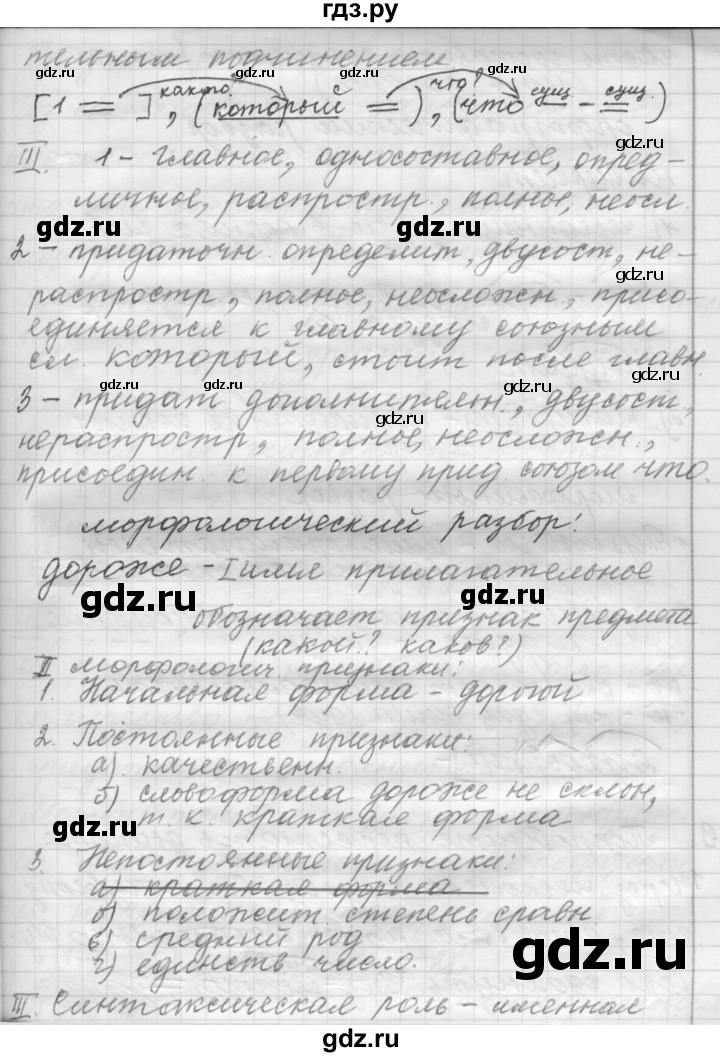 гдз.ру
тельным подчинением
[1 = ], (который = ), (что сущ. - сущ.)
както? что?
III. 1 - главное, односоставное, опред-
личное, распростр., полное, неосл.
gdz.ru gdz.ru
2 - придаточн. определит., двусост., не-
gdz.ru
распростр., полное, неосложн., присо-
единяется к главному союзным
сл. который, стоит после главн.
gdz.ru gdz.ru gdz.ru
3 - придат. дополнительн., двусост.,
нераспростр., полное, неосложн.,
присоедин. к первому прид. союзом что.
морфологический разбор:
дороже - I имя прилагательное
gdz.ru gdz.ru
обозначает признак предмета
(какой? каков?)
II морфологич. признаки:
1. Начальная форма - дорогой
2. Постоянные признаки:
а) качественн.
б) словоформа дороже не склон,
gdz.ru gdz.ru
т. к. краткая форма
3. Непостоянные признаки:
а) краткая форма
б) положит степень сравн
в) средний род
г) единств число.
gdz.ru gdz.ru
III. Синтаксическая роль - именная
gdz.ru